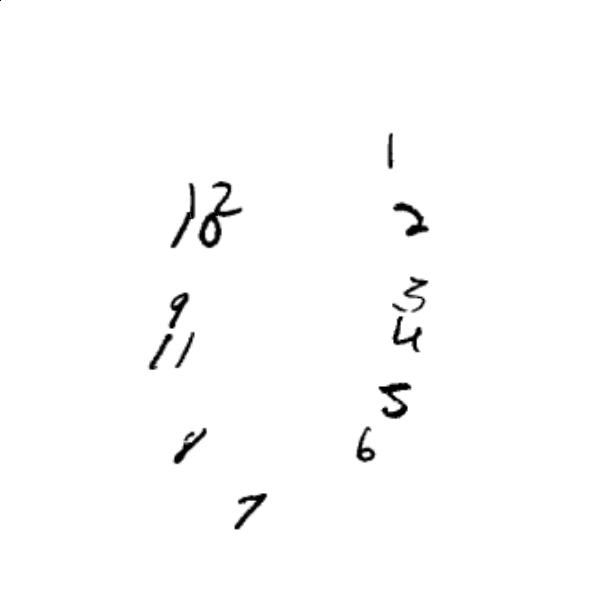 1
12
10 2
9 3
11 4
5
8 6
7